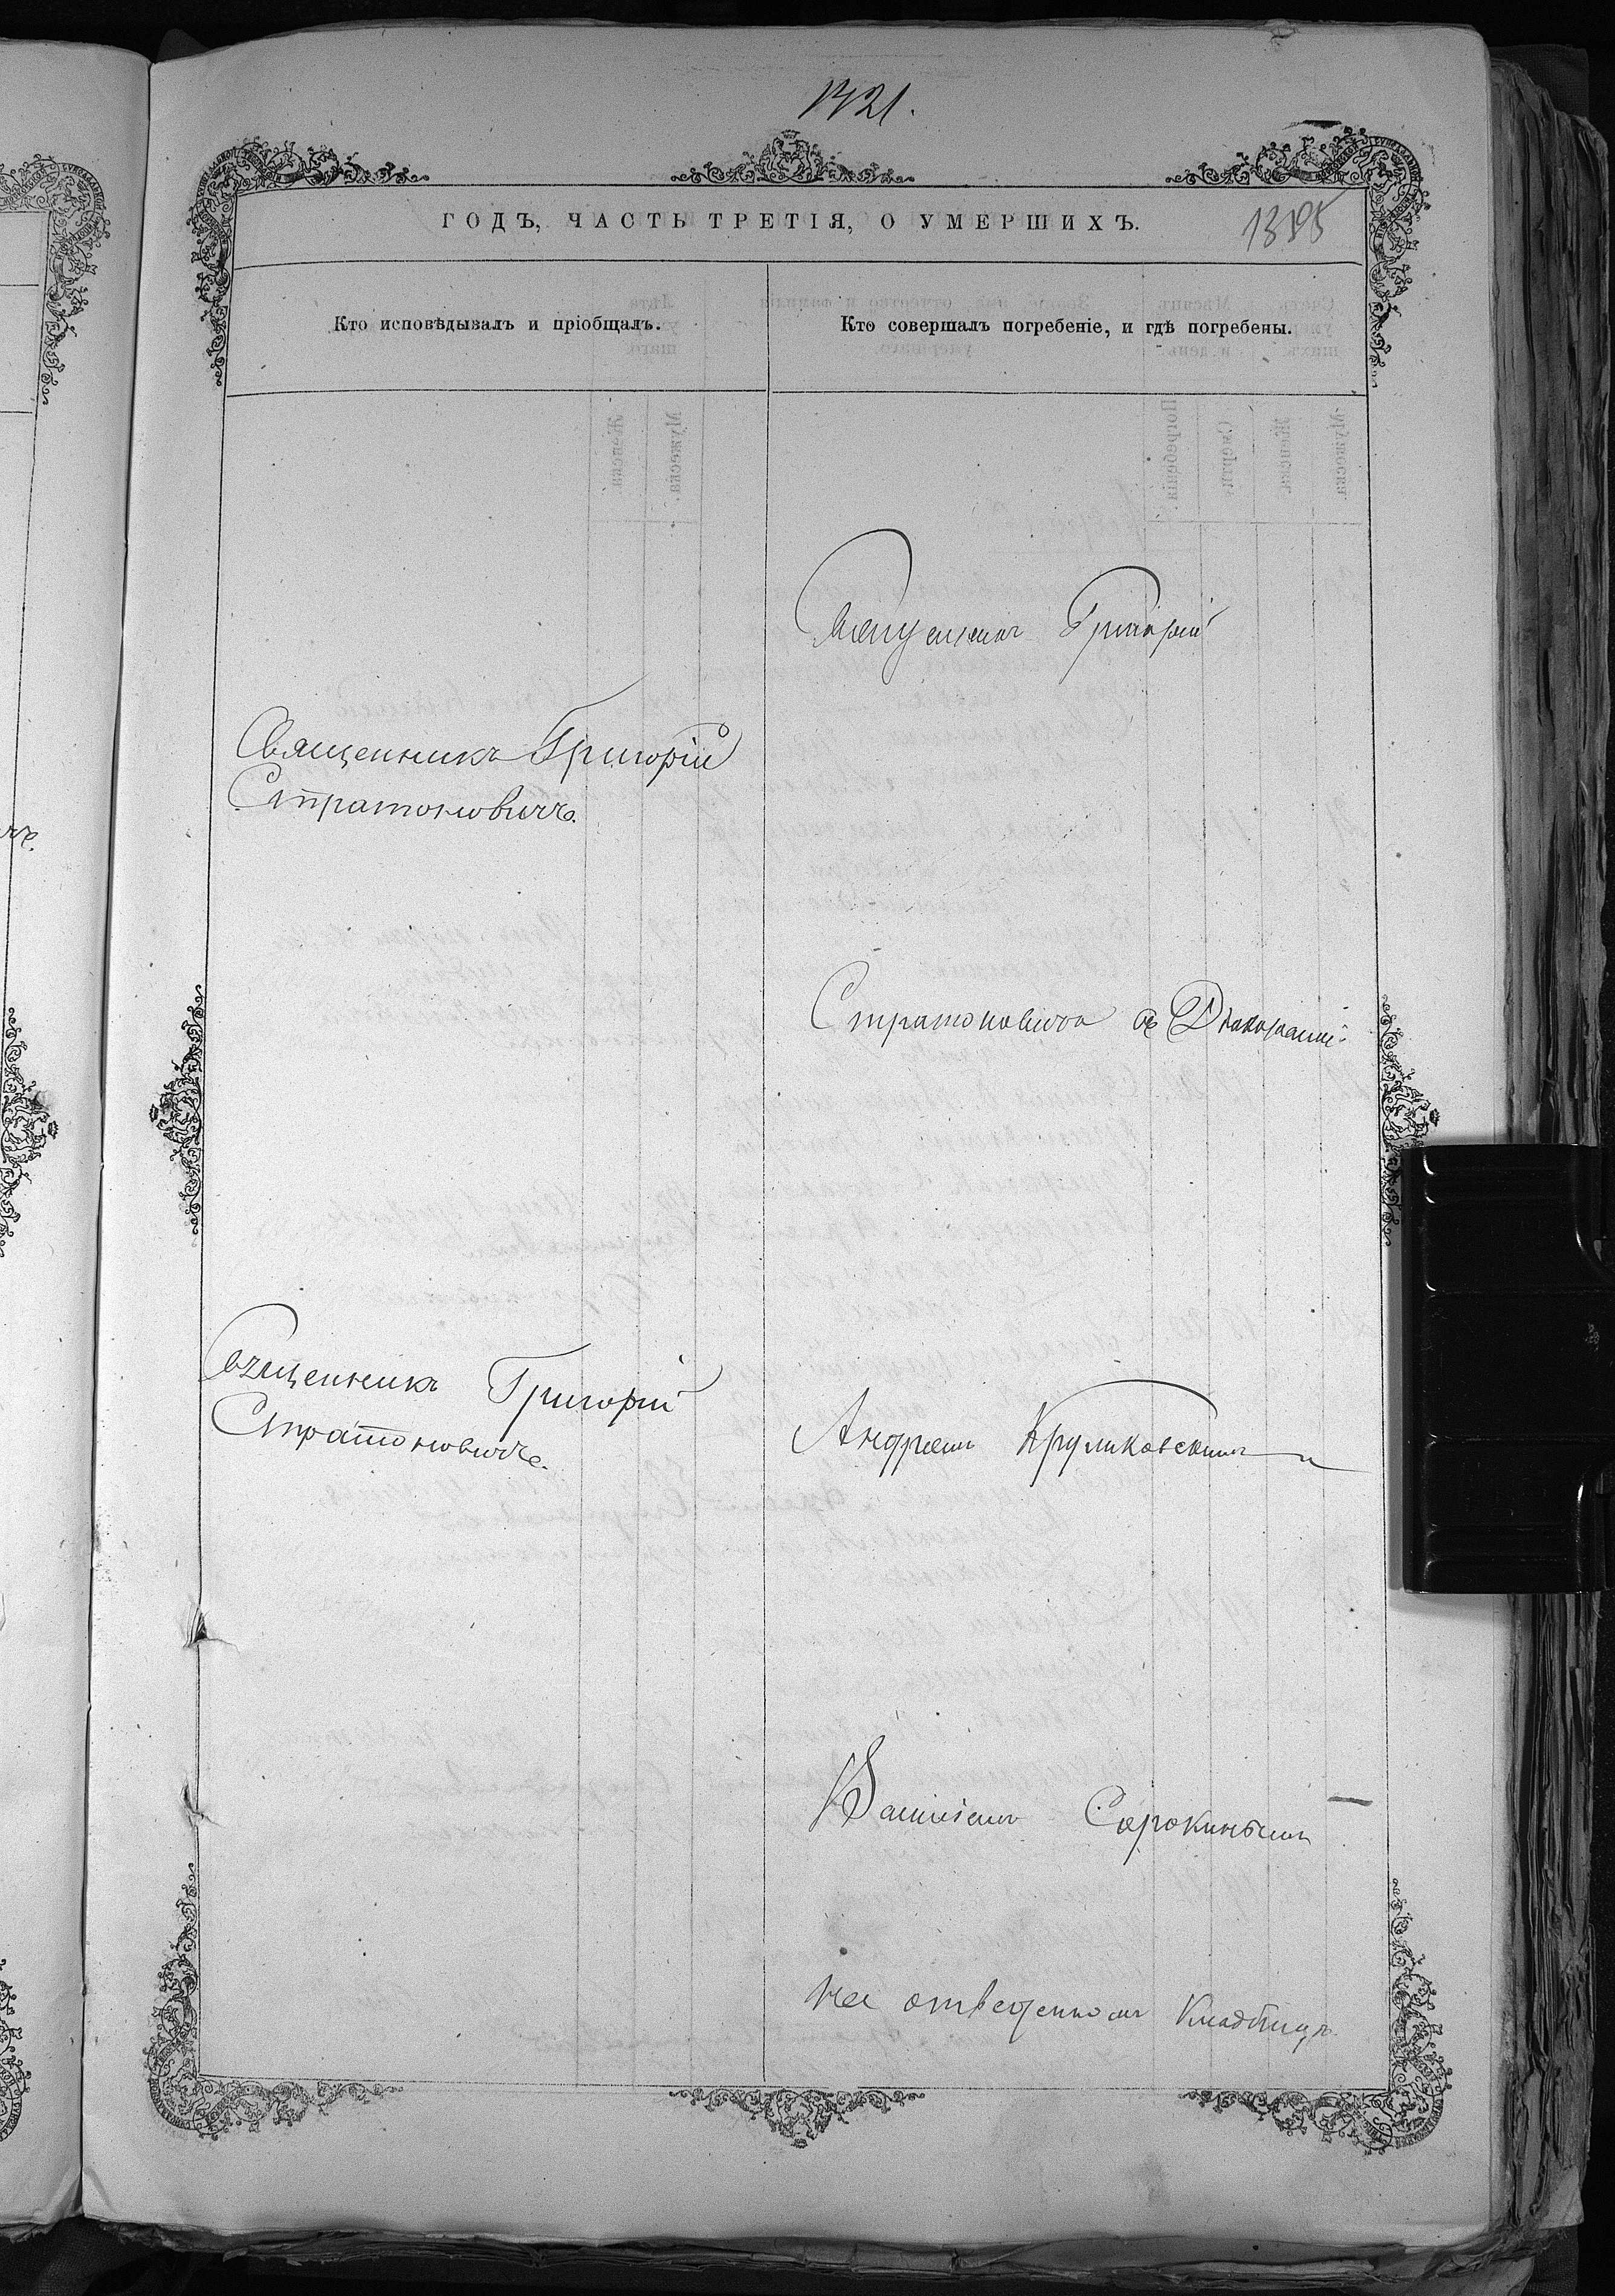 1321.
ГОДЪ, ЧАСТЬ ТРЕТІЯ, О УМЕРШИХЪ.
1395
Кто исповѣдывалъ и пріобщалъ.
Кто совершалъ погребеніе, и гдѣ погребены.
Священникъ Григорій
Стратоновичъ.
Священникъ Григорій
Стратоновичъ.
Священникъ Григорій
Стратоновичъ съ Діаконами:
Андреемъ Круликовскимъ и
Василіемъ Сорокинымъ
на отведенномъ кладбищѣ